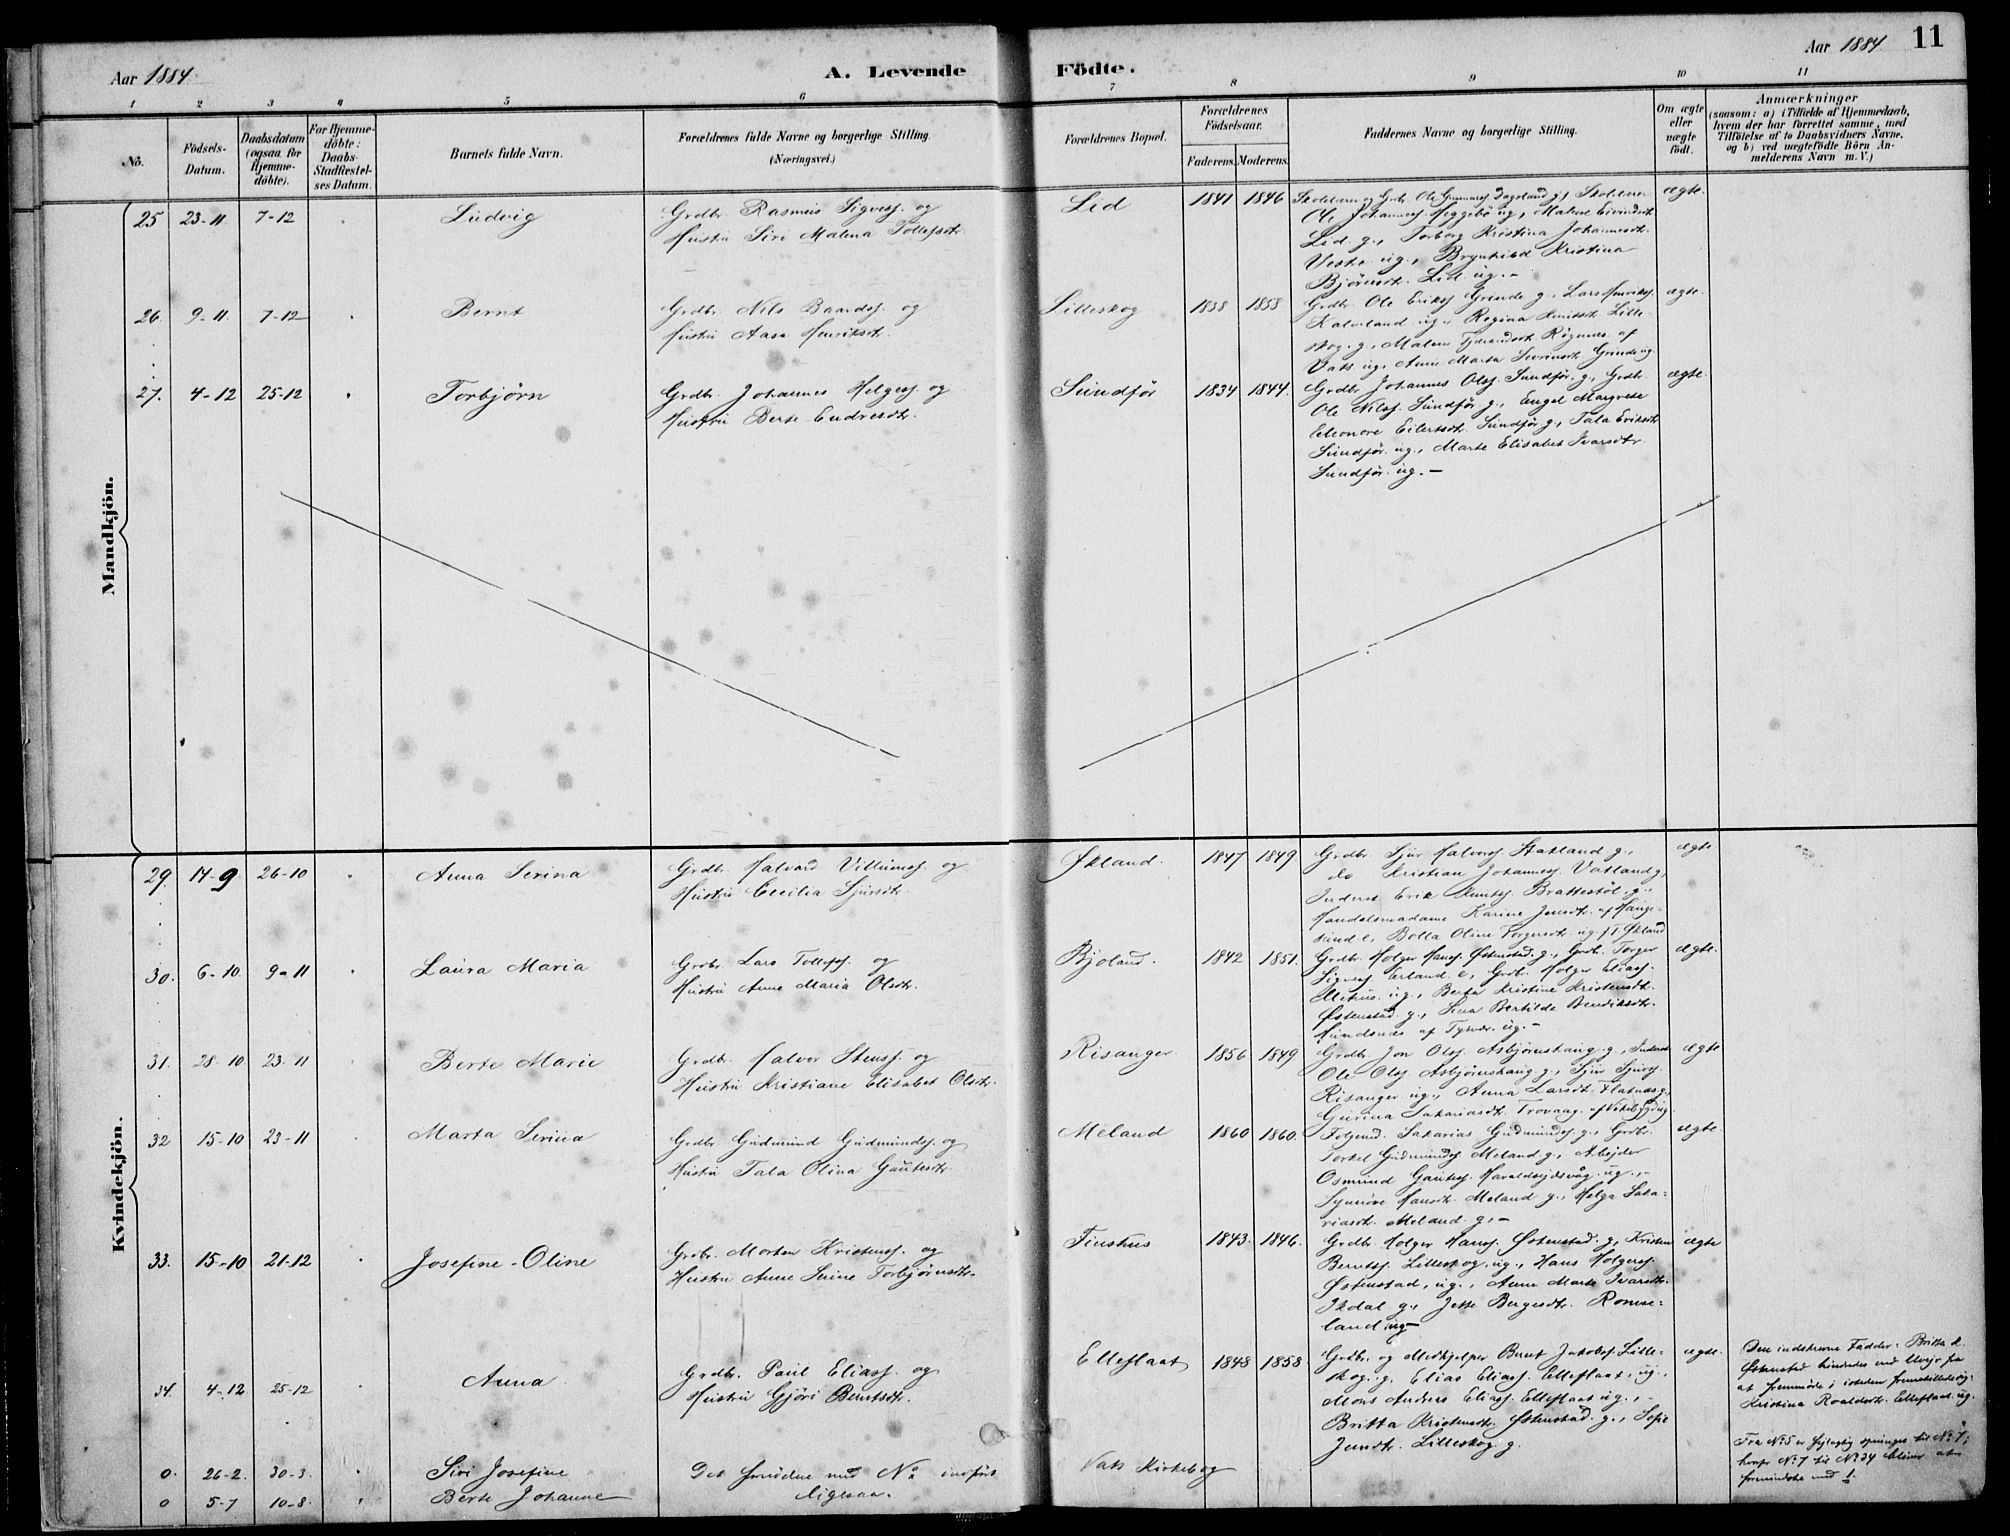 Aar 1884.
A. Levende Födte.
Aar 1884
11
1 2 3 4 5 6 7 8 9 10 11
No.
Födsels-Datum.
Daabsdatum (ogsaa for Hjemme-döbte).
For Hjemme-döbte: Daabs-Stadfæstel-ses Datum.
Barnets fulde Navn.
Forældrenes fulde Navne og borgerlige Stilling.
(Næringsvei.)
Forældrenes Bopæl.
Forældrenes Födselsaar.
Faderens. Moderens.
Faddernes Navne og borgerlige Stilling.
Om ægte eller uægte født.
Anmærkninger
(saasom: a) i Tilfælde af Hjemmedaab,
hvem der har forrettet samme, med
Tilföielse af to Daabsvidners Navne,
og b) ved uægtefödte Börn An-
melderens Navn m. V.)
Mandkjön.
25 23-11 7-12 Ludvig
Grdbr. Rasmus Sigvess. og
Hustru Siri Malena Tollefsdtr.
Lid 1841 1846
Ole Johanness. Heggebö ug., Malene Eivindsdt.
Lid g., Torborg Kristina Johannesdt.
ug., Brynhild Kristina
Björnsdt. Lid ug.-
ægte.
26. 9-11. 7-12 Bernt
Grdbr. Nils Baards. og
Hustru Aasa Henriksdt.
Lilleskog 1838 1858
Grdbr. Ole Eriks. Grinde g., Lars Henriks.
Kalveland ug., Regina Lille-
skog. g., Malene Røgenes af
Vats ug., Anne Marta Grinde ug.
ægte.
27. 4-12 25-12 Torbjörn
Grdbr. Johannes Helges. og
Hustru Berte Endresdtr.
Sundför 1834 1844.
Grdbr. Johannes Ols. Sundför. g., Grdbr.
Ole Nils. Sundför g., Engel Margrete
Eleonore Eilertsdt. Sundför g., Tala Eriksdt.
Sundför ug., Marte Elisabet Ivarsdtr.
Sundför. ug. -
ægte.
Kvindekjön.
29. 14-9 26-10 Anna Serina
Grdbr. Halvard Villums. og
Hustru Cecilia Sjursdt.
Økland. 1847 1849
Grdbr. Sjur Halvors. Stakland g.,
do Kristian Johanness. Vatland g,
Inderst Erik Knuts. Brattestöl, g.,
Handelsmadame Karine Jensdt. af Hauge-
sund e, Bolla Oline Torgersdt. ug. f. Økland
ægte
30. 6-10. 9-11 Laura Maria
Grdbr. Lars Tollefs. og
Hustru Anne Maria Olsdtr.
Bjoland. 1842 1851.
Grdbr. Holger Hans. Østenstad. g., Grdb. Torger
Sigves. Erland e, Grdb. Holger Elias.
ug., Berta Kristine Kristensdt.
Østenstad. g., Sina Bertilde Bendiksdt.
Hundsnes af Tysvær. ug. -
ægte.
31. 28-10 23-11 Berte Marie
Grdbr. Halvor Stens. og
Hustru Kristiane Elisabet Olsdtr.
Risanger. 1856 1849
Grdbr. Jon Ols. Asbjörnshaug. g., Inderst
Ole Ols. Asbjörnshaug g., Sjur Sjurs.
Risanger ug., Anna Larsdt. Flatnes g.,
Gurina Sakariasdt. Trovaag. af Vikebygd ug.
ægte
32 15-10 23-11 Marta Serina
Grdbr Gudmund Gudmunds. og
Hustru Tala Olina Gautesdt.
Meland 1860 1860.
Folgemd. Sakarias Gudmunds. g., Grdbr.
Torkel Gudmunds. Meland g., Arbejder
Osmund Gautes. Haraldsejdsvåg ug.,-
Synnöve Hansdt. Meland g., Helga Saka-
riasdt. Meland. g. -
ægte.
33. 15-10 21-12 Josefine-Oline
Grdbr. Morten Kristens. og
Hustru Anne Serine Torbjörnsdtr.
1843. 1846.
Grdbr Holger Hans. Østenstad. g., Kristen
Bernts. Lilleskog, ug., Hans Holgers.
Østenstad, ug., Anne Marte Ivarsdt.
g., Jette Bergesdtr. Romse-
land ug-
ægte
34. 4-12 25-12 Anna
Grdbr. Paul Elias. og
Hustru Gjöri Berntsdt.
Elleflaat 1848 1858
Grdbr. og Medhjelper Bernt Jakobs. Lille-
skog. g. Elias Elias. Elleflaat, ug.,
Mons Andreas Elias. Elleflaat ug.,-
Britta Kristensdt. Østenstad. g., Sofie
Jensdt. Lilleskog. g.
ægte.
Den indskrevne Fadder: Britta K.
Østenstad hindredes ved Uvejr fra
at fremmöde; istedet fremstillede sig:
Kristina Roaldsdt. Elleflaat ug.
0. 26-2. 30-3. Siri Josefine
Det forudene med No indfört
Vats Kirkebog
Fra No 5 er fejlagtig springes til No 7;
No 7 til No 34 bliver at
formindske med 1.
0 5-7 10-8. Berte Johanne
ligesaa.